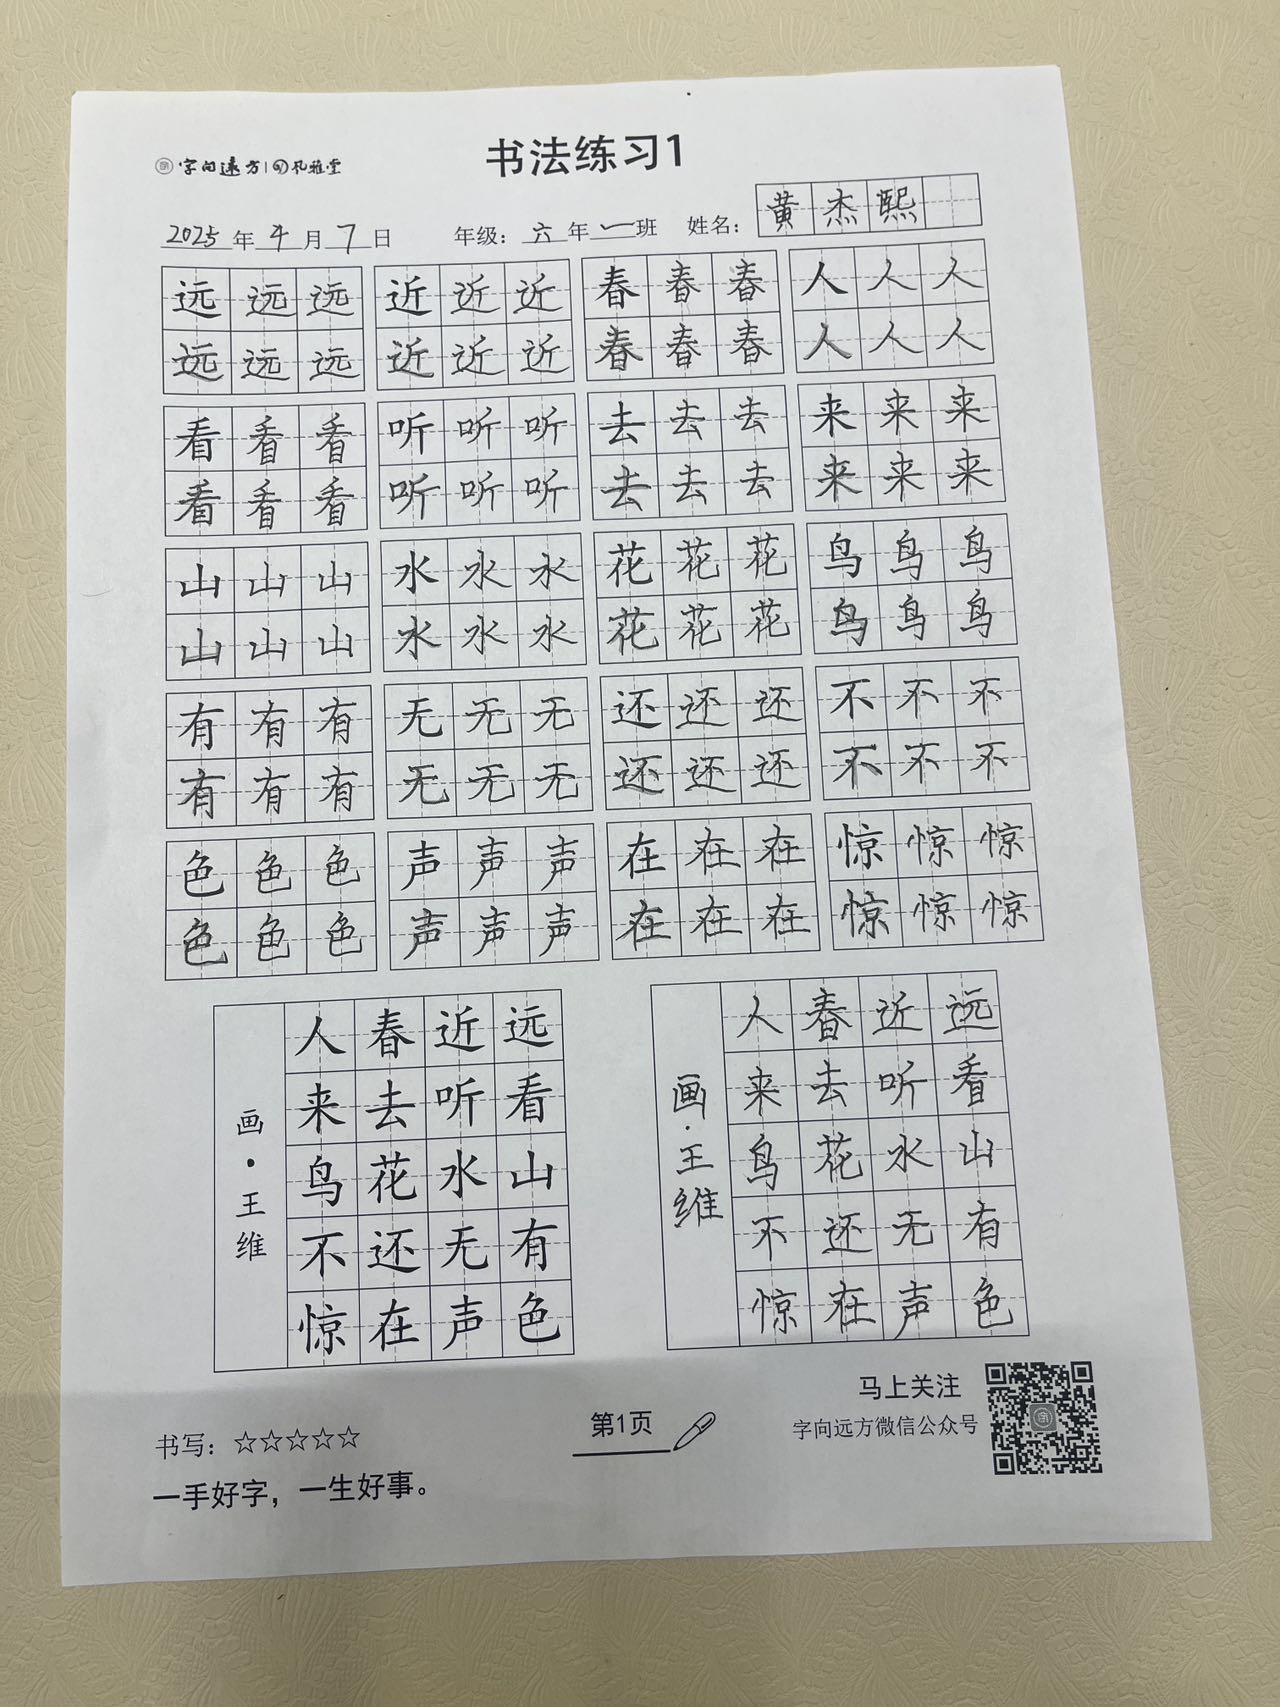 字向远方 孔雅堂
书法练习1
2025年4月7日 年级：六年一班 姓名：黄杰熙
远远远 近近近 春春春 人人人
远远远 近近近 春春春 人人人
看看看 听听听 去去去 来来来
看看看 听听听 去去去 来来来
山山山 水水水 花花花 鸟鸟鸟
山山山 水水水 花花花 鸟鸟鸟
有有有 无无无 还还还 不不不
有有有 无无无 还还还 不不不
色色色 声声声 在在在 惊惊惊
色色色 声声声 在在在 惊惊惊
远看山有色
近听水无声
春去花还在
人来鸟不惊
画·王维
远看山有色
近听水无声
春去花还在
人来鸟不惊
画·王维
书写：☆☆☆☆☆
一手好字，一生好事。
第1页
马上关注
字向远方微信公众号